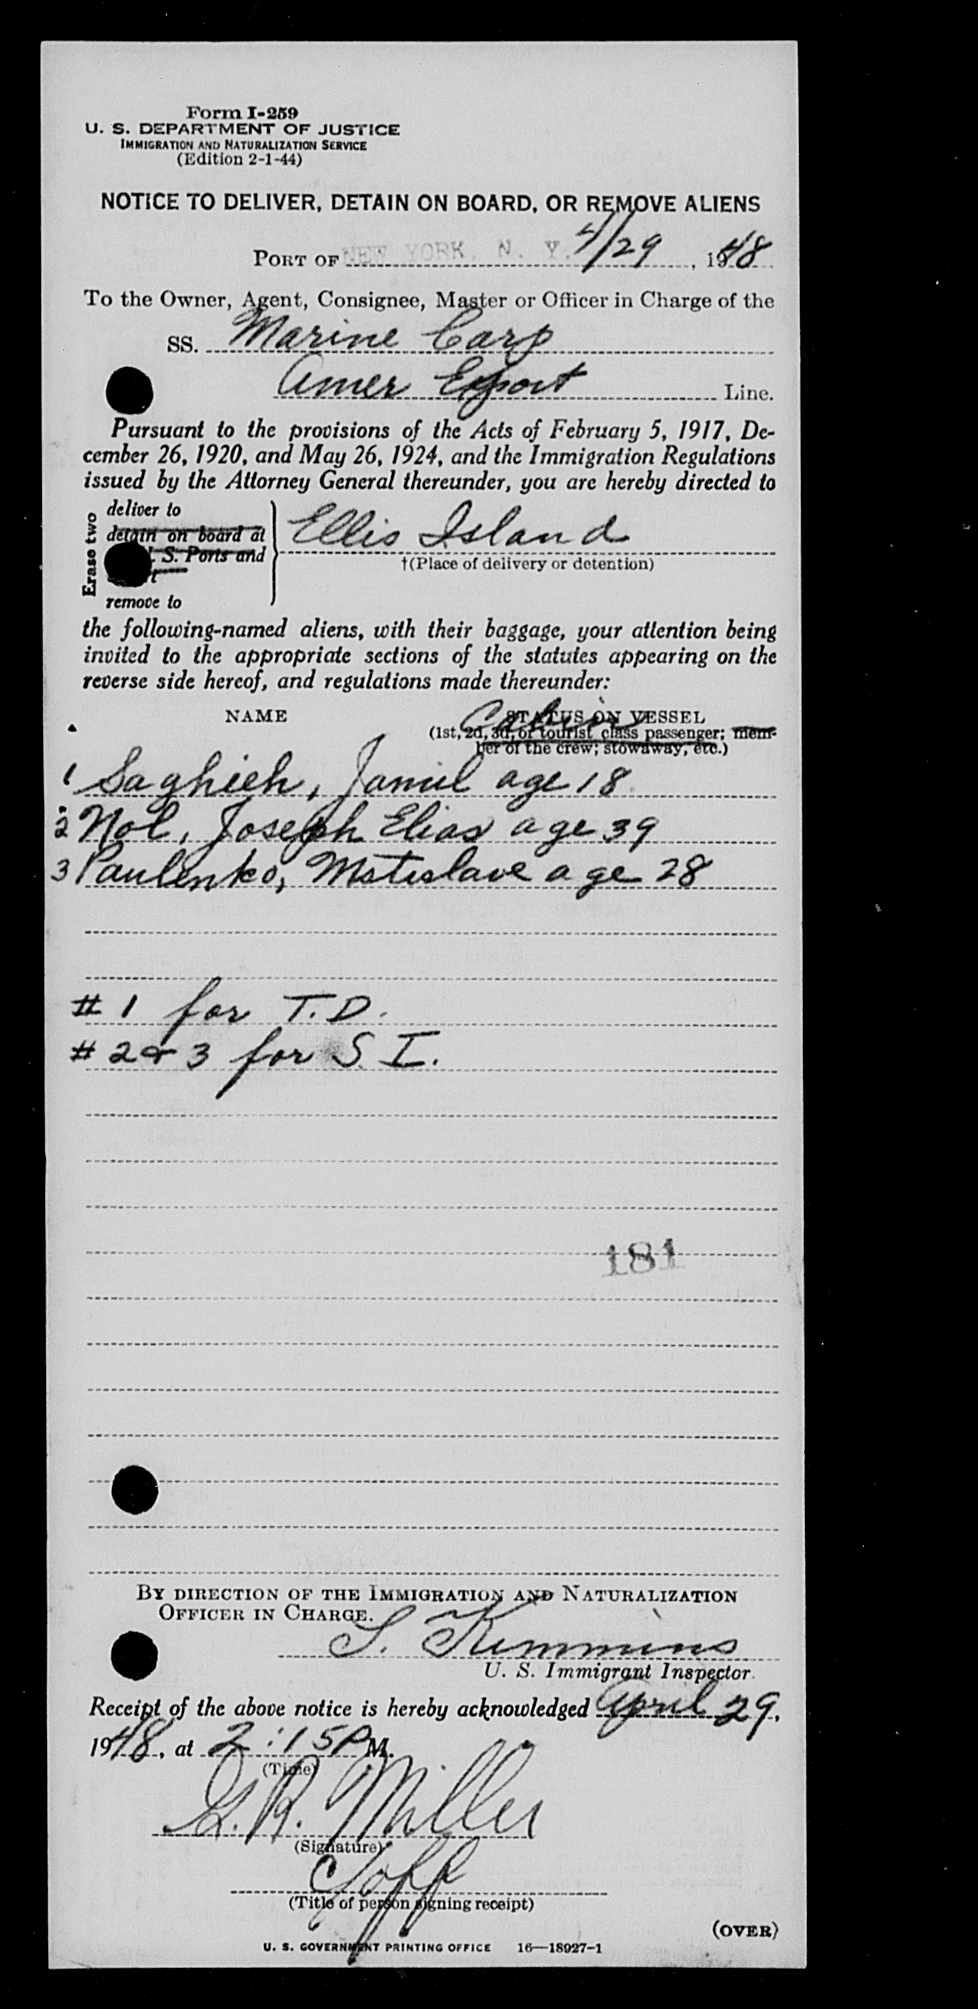 Form I-259
U. S. DEPARTMENT OF JUSTICE
IMMIGRATION AND NATURALIZATION SERVICE
(Edition 2-1-44)
NOTICE TO DELIVER, DETAIN ON BOARD, OR REMOVE ALIENS
PORT OF NEW YORK, N. Y. 4/29, 1948
To the Owner, Agent, Consignee, Master or Officer in Charge of the
SS. Marine Carp
Amer Export Line.
Pursuant to the provisions of the Acts of February 5, 1917, De-
cember 26, 1920, and May 26, 1924, and the Immigration Regulations
issued by the Attorney General thereunder, you are hereby directed to
Erase two
deliver to
detain on board at
S. Ports and
remove to
Ellis Island
†(Place of delivery or detention)
the following-named aliens, with their baggage, your attention being
invited to the appropriate sections of the statutes appearing on the
reverse side hereof, and regulations made thereunder:
NAME STATUS ON VESSEL
Cabin
(1st, 2d, 3d, or tourist class passenger; mem-
ber of the crew; stowaway, etc.)
1 Saghieh, Jamil age 18
2 Nol, Joseph Elias age 39
3 Paulenko, Mstislave age 28
# 1 for T.D.
# 2 & 3 for S. I.
181
BY DIRECTION OF THE IMMIGRATION AND NATURALIZATION
OFFICER IN CHARGE.
S. Kimmins
U. S. Immigrant Inspector.
Receipt of the above notice is hereby acknowledged April 29,
1948, at 2:15 P M.
(Time)
G. R. Miller
(Signature)
(Title of person signing receipt)
(OVER)
U. S. GOVERNMENT PRINTING OFFICE 16—18927-1